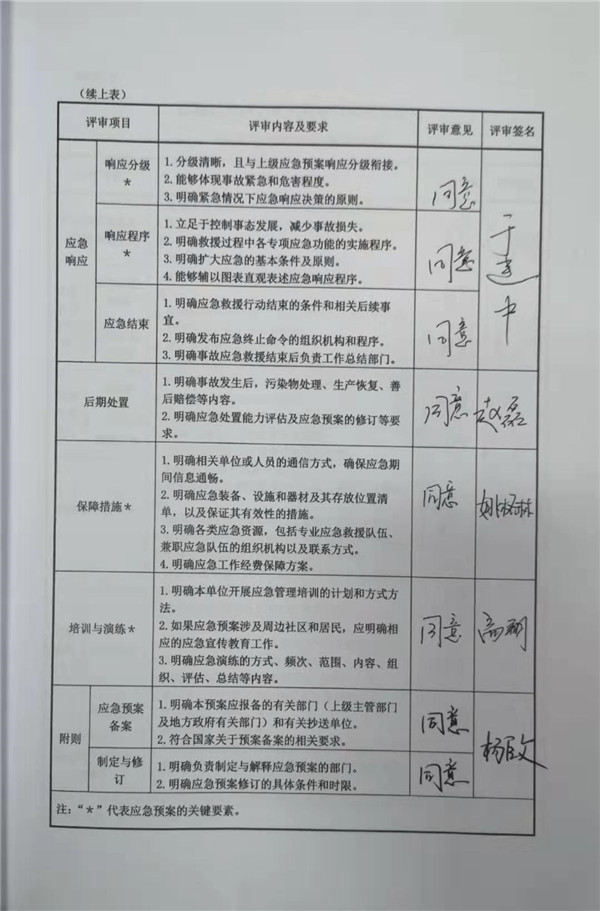 （续上表）
评审项目 评审内容及要求 评审意见 评审签名
应急响应
响应分级
*
1. 分级清晰，且与上级应急预案响应分级衔接。
2. 能够体现事故紧急和危害程度。
3. 明确紧急情况下应急响应决策的原则。
同意
响应程序
*
1. 立足于控制事态发展，减少事故损失。
2. 明确救援过程中各专项应急功能的实施程序。
3. 明确扩大应急的基本条件及原则。
4. 能够辅以图表直观表述应急响应程序。
同意
于建中
应急结束
1. 明确应急救援行动结束的条件和相关后续事
宜。
2. 明确发布应急终止命令的组织机构和程序。
3. 明确事故应急救援结束后负责工作总结部门。
同意
后期处置
1. 明确事故发生后，污染物处理、生产恢复、善
后赔偿等内容。
2. 明确应急处置能力评估及应急预案的修订等要
求。
同意
赵磊
保障措施*
1. 明确相关单位或人员的通信方式，确保应急期
间信息通畅。
2. 明确应急装备、设施和器材及其存放位置清
单，以及保证其有效性的措施。
3. 明确各类应急资源，包括专业应急救援队伍、
兼职应急队伍的组织机构以及联系方式。
4. 明确应急工作经费保障方案。
同意
培训与演练*
1. 明确本单位开展应急管理培训的计划和方式方
法。
2. 如果应急预案涉及周边社区和居民，应明确相
应的应急宣传教育工作。
3. 明确应急演练的方式、频次、范围、内容、组
织、评估、总结等内容。
同意
高翔
附则
应急预案
备案
1. 明确本预案应报备的有关部门（上级主管部门
及地方政府有关部门）和有关抄送单位。
2. 符合国家关于预案备案的相关要求。
同意
制定与修
订
1. 明确负责制定与解释应急预案的部门。
2. 明确应急预案修订的具体条件和时限。
同意
注：“*”代表应急预案的关键要素。